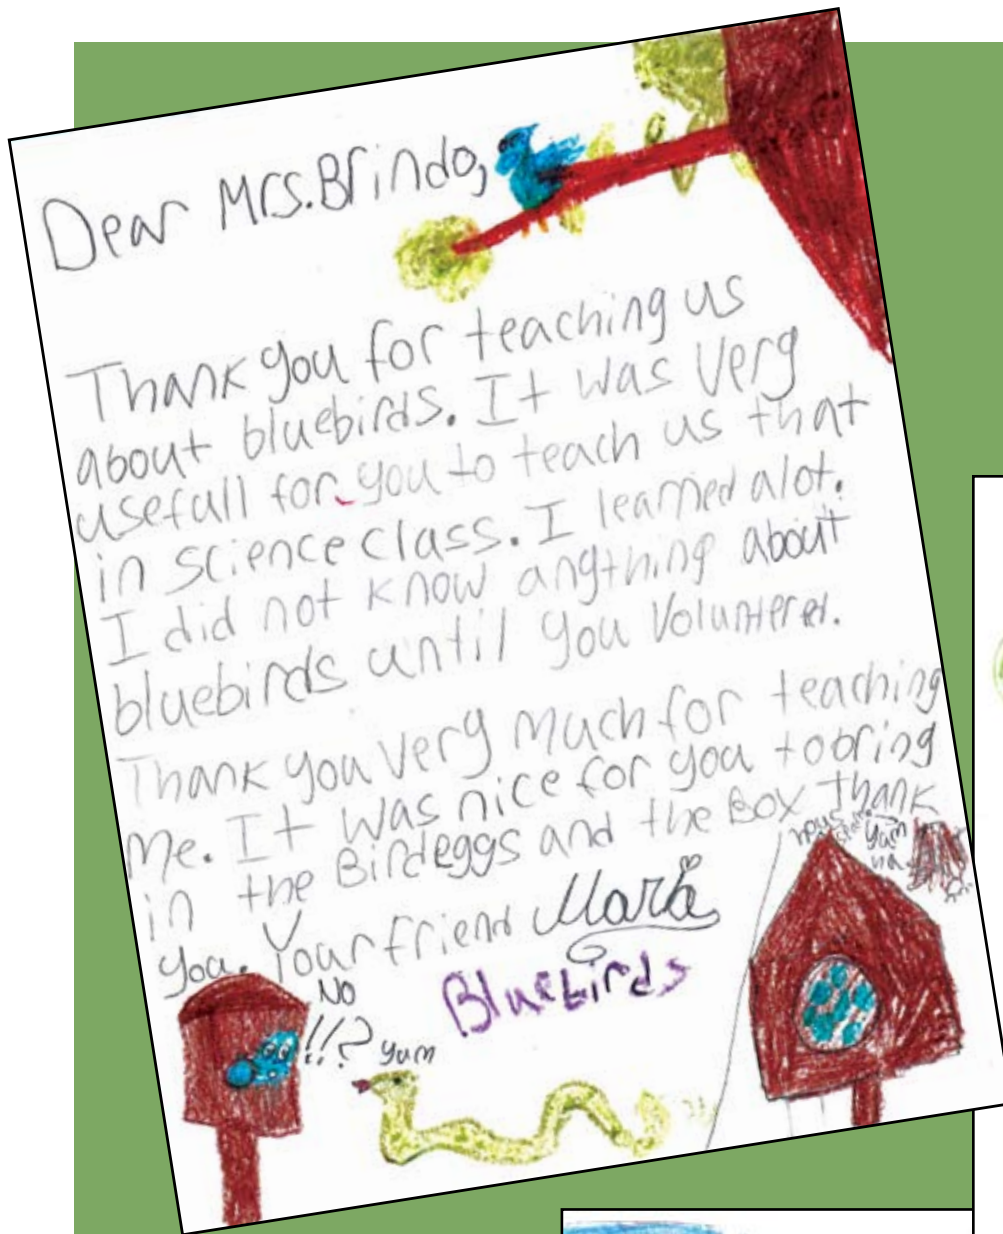 Dear Mrs.Brindo,
Thank you for teaching us
about bluebirds. It was Very
usefull for you to teach us that
in science class. I learned alot.
I did not know anything about
bluebirds until you Volunterd.
Thank you Very Much for teaching
Me. It was nice for you to bring
in the Birdeggs and the Box thank
you. Your friend Maria
Bluebirds
No
!!?
Yum
Yum
ha